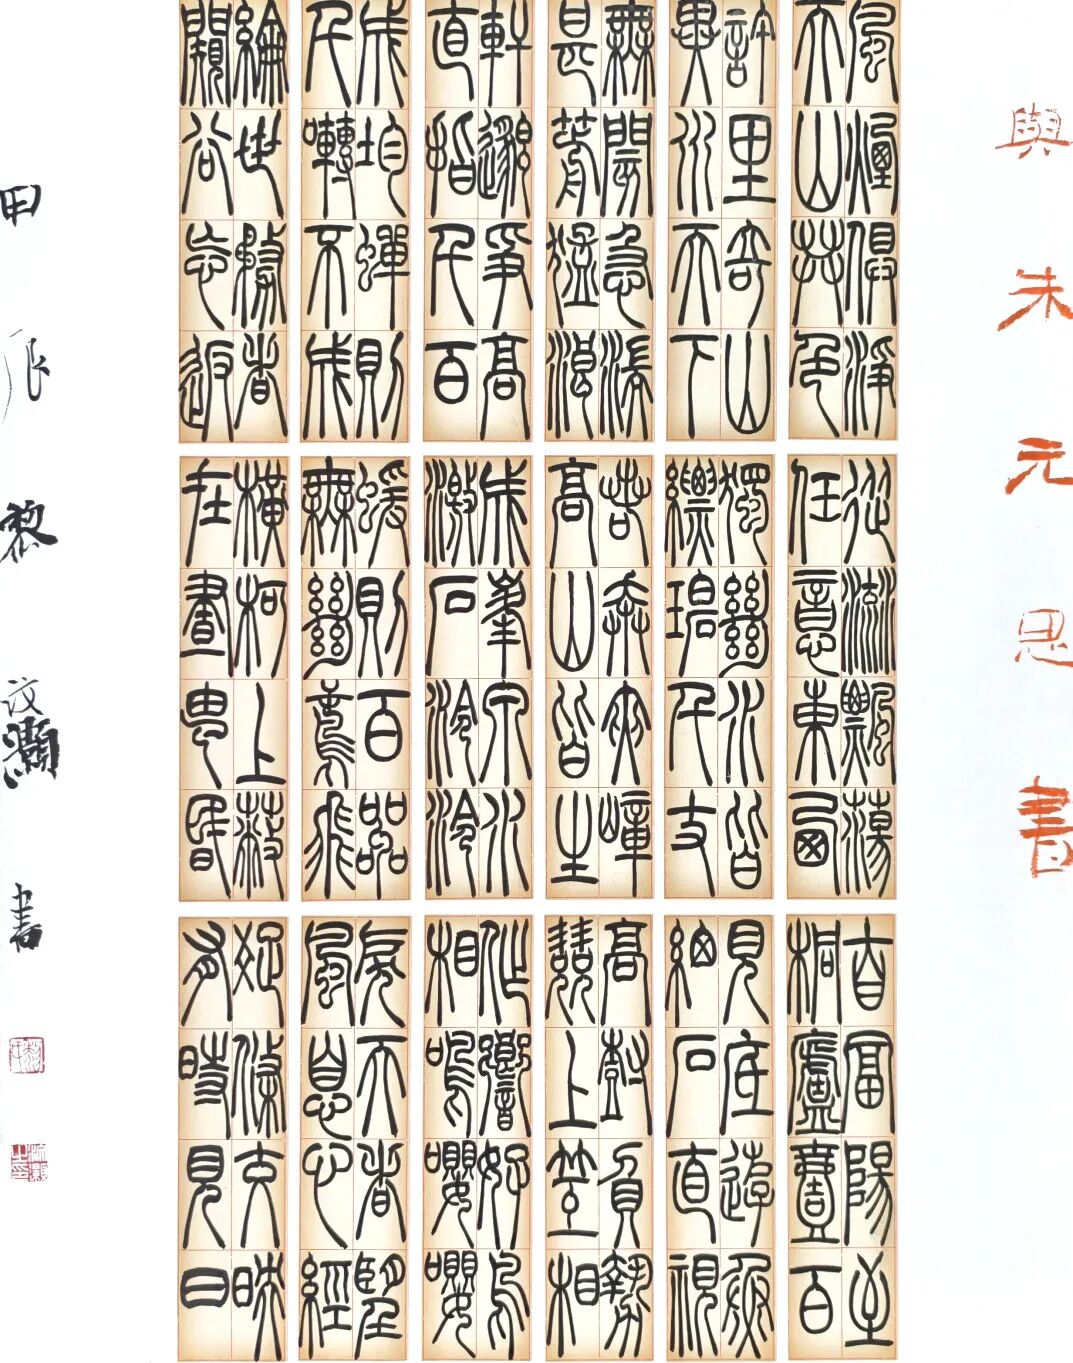 與朱元思書
風煙俱淨
天山共色
從流飄蕩
任意東西
自富陽至
桐廬壹百
許里奇山
異水天下
獨絕水皆
縹碧千丈
見底游魚
細石直視
無礙急湍
甚箭猛浪
若奔夾嶂
高山皆生
高樹負勢
競上互相
軒邈爭高
直指千百
成峯泉水
激石泠泠
作響好鳥
相鳴嚶嚶
成韵蟬則
千囀不成
猨則百叫
無絕鳶飛
戾天者望
風息心經
綸世務者
窺谷忘返
橫柯上蔽
在晝猶昏
疏條交映
有時見日
甲辰黎汶灝書